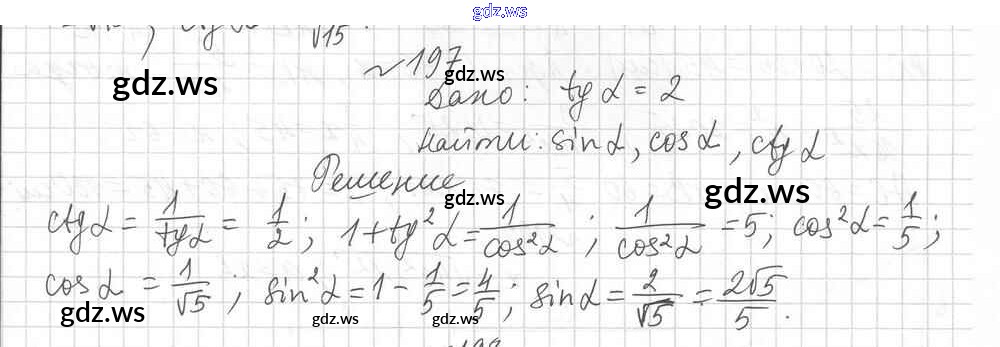 gdz.ws
√15
№197
gdz.ws gdz.ws
Дано: tg α = 2
Найти: sin α, cos α, ctg α
Решение gdz.ws
ctg α = 1/tg α = 1/2; 1 + tg² α = 1/cos² α; 1/cos² α = 5; cos² α = 1/5;
cos α = 1/√5; sin² α = 1 - 1/5 = 4/5; sin α = 2/√5 = 2√5/5.
gdz.ws gdz.ws gdz.ws